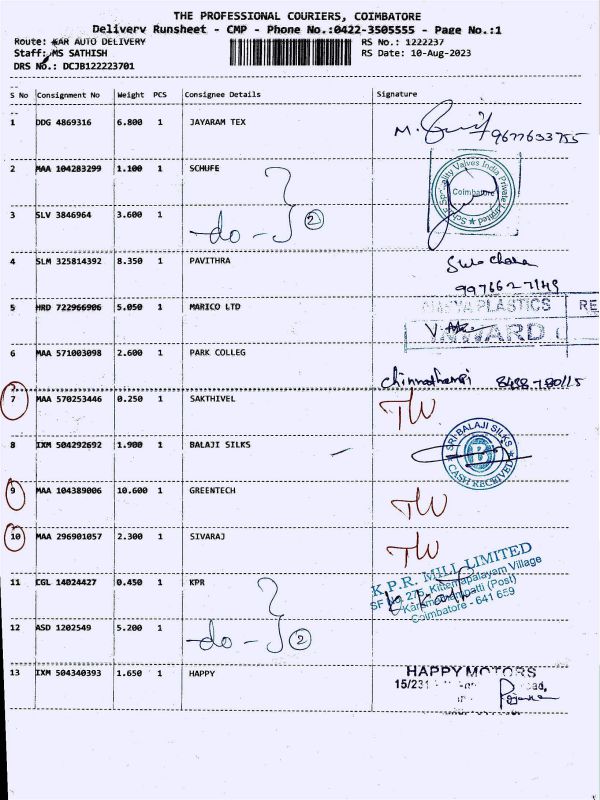 THE PROFESSIONAL COURIERS, COIMBATORE
Delivery Runsheet - CMP - Phone No.:0422-3505555 - Page No.:1
Route: KAR AUTO DELIVERY RS No.: 1222237
Staff: MS SATHISH RS Date: 10-Aug-2023
DRS No.: DCJB122223701
S No Consignment No Weight PCS Consignee Details Signature
1 DDG 4869316 6.800 1 JAYARAM TEX M. 9677633755
2 MAA 104283299 1.100 1 SCHUFE
Valves India Private Limited Coimbatore
3 SLV 3846964 3.600 1 -do- } 2
4 SLM 325814392 8.350 1 PAVITHRA
5 HRD 722966906 5.050 1 MARICO LTD PLASTICS RE
INWARD
6 MAA 571003098 2.600 1 PARK COLLEG
7 MAA 570253446 0.250 1 SAKTHIVEL TW
8 IXM 504292692 1.900 1 BALAJI SILKS SRI BALAJI SILKS B CASH RECEIVED
9 MAA 104389006 10.600 1 GREENTECH TW
10 MAA 296901057 2.300 1 SIVARAJ TW
11 CGL 14024427 0.450 1 KPR K.P.R. MILL LIMITED
SF No. 275, Village
(Post)
Coimbatore - 641 659
12 ASD 1202549 5.200 1 -do- } 2
13 IXM 504340393 1.650 1 HAPPY HAPPY MOTORS
15/231